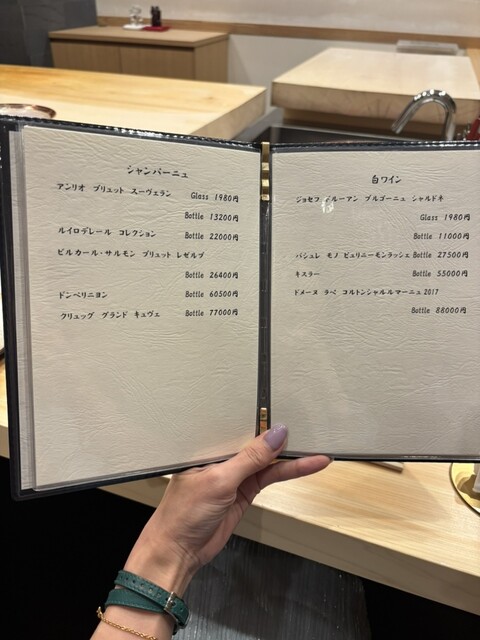 シャンパーニュ
アンリオ ブリュット スーヴェラン Glass 1980円
Bottle 13200円
ルイロデレール コレクション Bottle 22000円
ビルカール・サルモン ブリュット レゼルブ
Bottle 26400円
ドンペリニヨン Bottle 60500円
クリュッグ グランド キュヴェ Bottle 77000円
白ワイン
ジョセフ ドルーアン ブルゴーニュ シャルドネ
Glass 1980円
Bottle 11000円
バシュレ モノ ピュリニーモンラッシェ Bottle 27500円
キスラー Bottle 55000円
ドメーヌ ラペ コルトンシャルルマーニュ 2017
Bottle 88000円